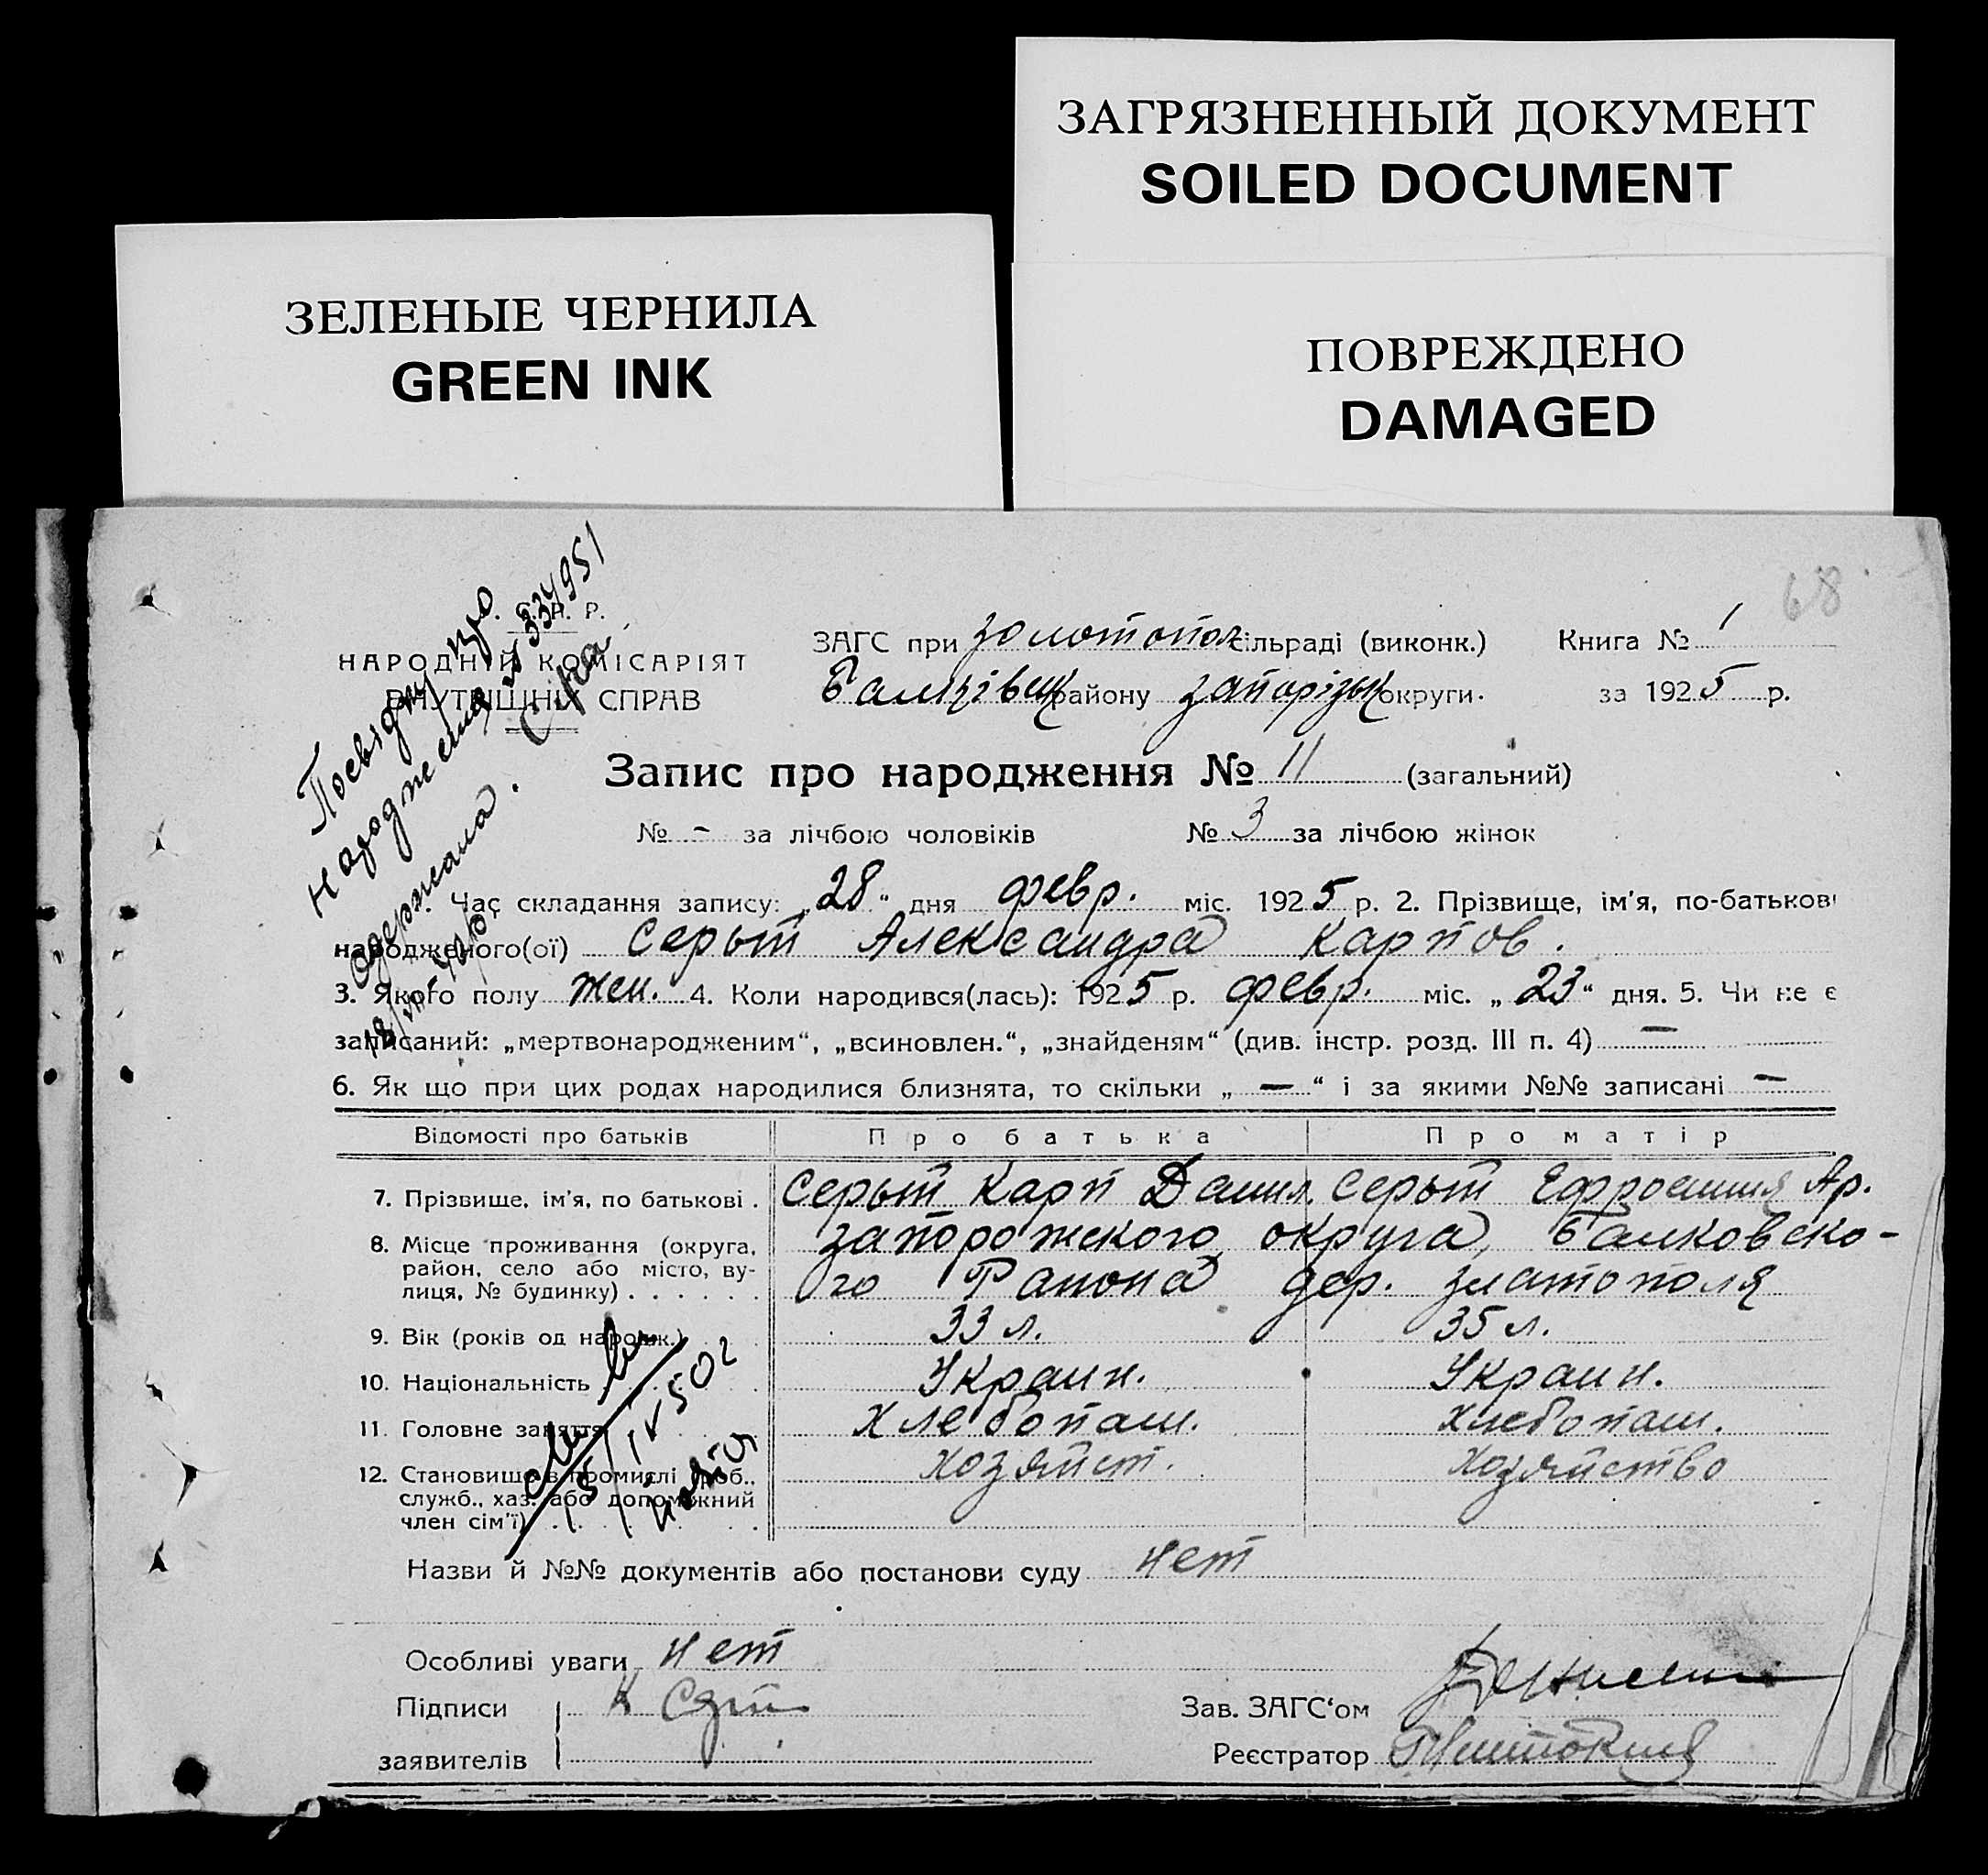 ЗАГРЯЗНЕННЫЙ ДОКУМЕНТ
SOILED DOCUMENT
ЗЕЛЕНЫЕ ЧЕРНИЛА
GREEN INK
ПОВРЕЖДЕНО
DAMAGED
68
Р.
НАРОДНІЙ КОМІСАРІЯТ
ВНУТРІШНІХ СПРАВ
про
народження № 334951
одержала.
ЗАГС при Золотопол. сільраді (виконк.) Книга № 1
району Запорізьк округи. за 1925 р.
Запис про народження № 11 (загальний)
№ - за лічбою чоловіків № 3 за лічбою жінок
Час складання запису: „28" дня февр. міс. 1925 р. 2. Прізвище, ім'я, по-батькові
народженого(ої) Серый Александра Карпов.
3. Якого полу жен. 4. Коли народився(лась): 1925 р. февр. міс. „23" дня. 5. Чи не є
записаний: „мертвонародженим", „всиновлен.", „знайденям" (див. інстр. розд. III п. 4) —
6. Як що при цих родах народилися близнята, то скільки „ — " і за якими №№ записані —
Відомості про батьків Про батька Про матір
7. Прізвище, ім'я, по батькові . Серый Карп Данил. Серый Ефросиния Ар.
8. Місце проживання (округа, район, село або місто, вулиця, № будинку) . . . . . .
Запорожского округа, Балковско-
го Района дер. Златополя
9. Вік (років од народж.) 33 л. 35 л.
10. Національність Украин. Украин.
11. Головне заняття Хлебопаш. Хлебопаш.
12. Становище в промислі (роб., хозяйст. хозяйство
служб., хаз. або допоможний
член сім'ї)
15/IV 50 г
Назви й №№ документів або постанови суду нет
Особливі уваги нет
Підписи
заявителів
Зав. ЗАГС'ом
Реєстратор